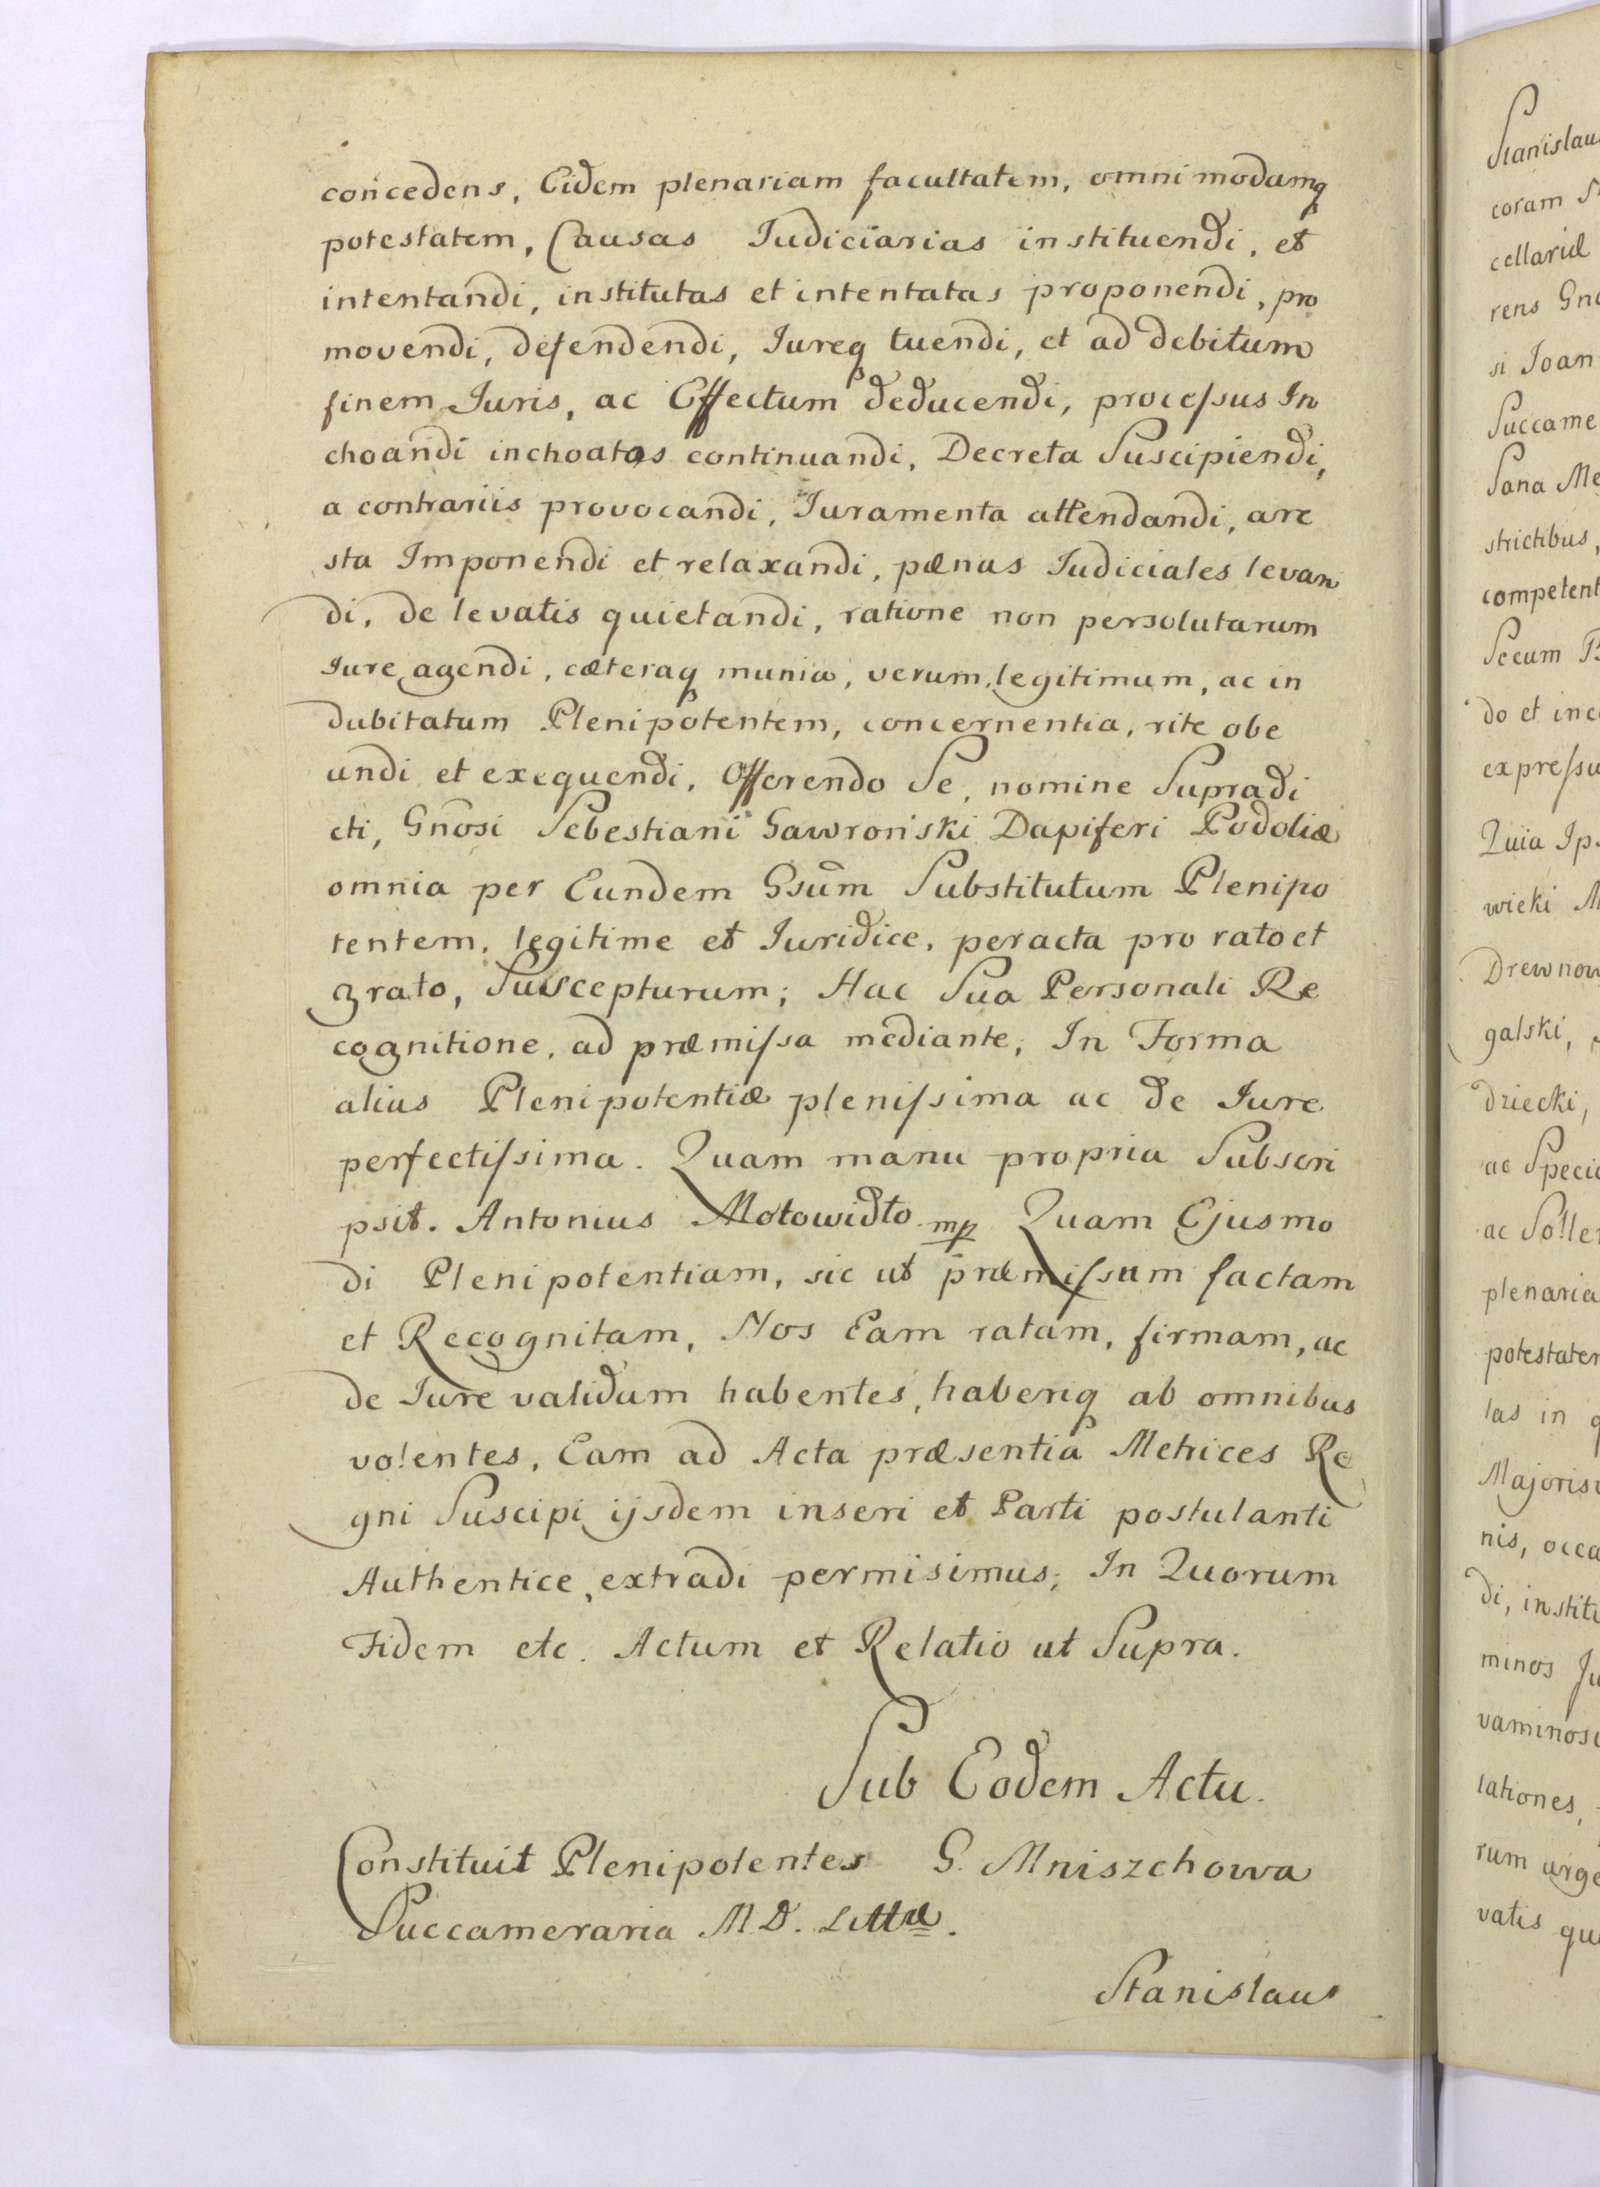 concedens, Eidem plenariam facultatem, omnimodamq
potestatem, Causas Iudiciarias instituendi, et
intentandi, institutas et intentatas proponendi, pro
movendi, defendendi, Iureq tuendi, et ad debitum
finem Iuris, ac Effectum deducendi, processus In
choandi inchoatos continuandi, Decreta Suscipiendi,
a contrariis provocandi, Iuramenta attendandi, are
sta Imponendi et relaxandi, pænas Iudiciales levan
di, de levatis quietandi, ratione non persolutarum
Iure agendi, cæteraq munia, verum, legitimum, ac in
dubitatum Plenipotentem, concernentia, rite obe
undi et exequendi. Offerendo Se, nomine Supradi
cti, Gnosi Sebestiani Gawroński Dapiferi Podoliæ
omnia per Eundem Gsum Substitutum Plenipo
tentem, legitime et Iuridice, peracta pro rato et
grato, Suscepturum; Hac Sua Personali Re
cognitione, ad præmissa mediante, In Forma
alias Plenipotentiæ plenissima ac de Iure
perfectissima. Quam manu propria Subscri
psit. Antonius Motowidło mp Quam Ejusmo
di Plenipotentiam, sic ut præmissum factam
et Recognitam, Nos Eam ratam, firmam, ac
de Iure validum habentes, haberiq ab omnibus
volentes, Eam ad Acta præsentia Metrices Re
gni Suscipi ijsdem inseri et Parti postulanti
Authentice, extradi permisimus; In Quorum
Fidem etc. Actum et Relatio ut Supra.
Sub Eodem Actu.
Constituit Plenipotentes G. Mniszchowa
Succameraria M D. Littæ.
Stanislaus
Stanislaus
coram
cellariæ
rens
si Ioan
Succame
Sana
strictibus,
competent
Secum
do et
expressu
Quia
wicki
Drewnow
galski,
dziecki,
ac
ac
plenaria
potestatem
las in
Majoris
nis,
di,
minos
vaminos
lationes,
rum
vatis